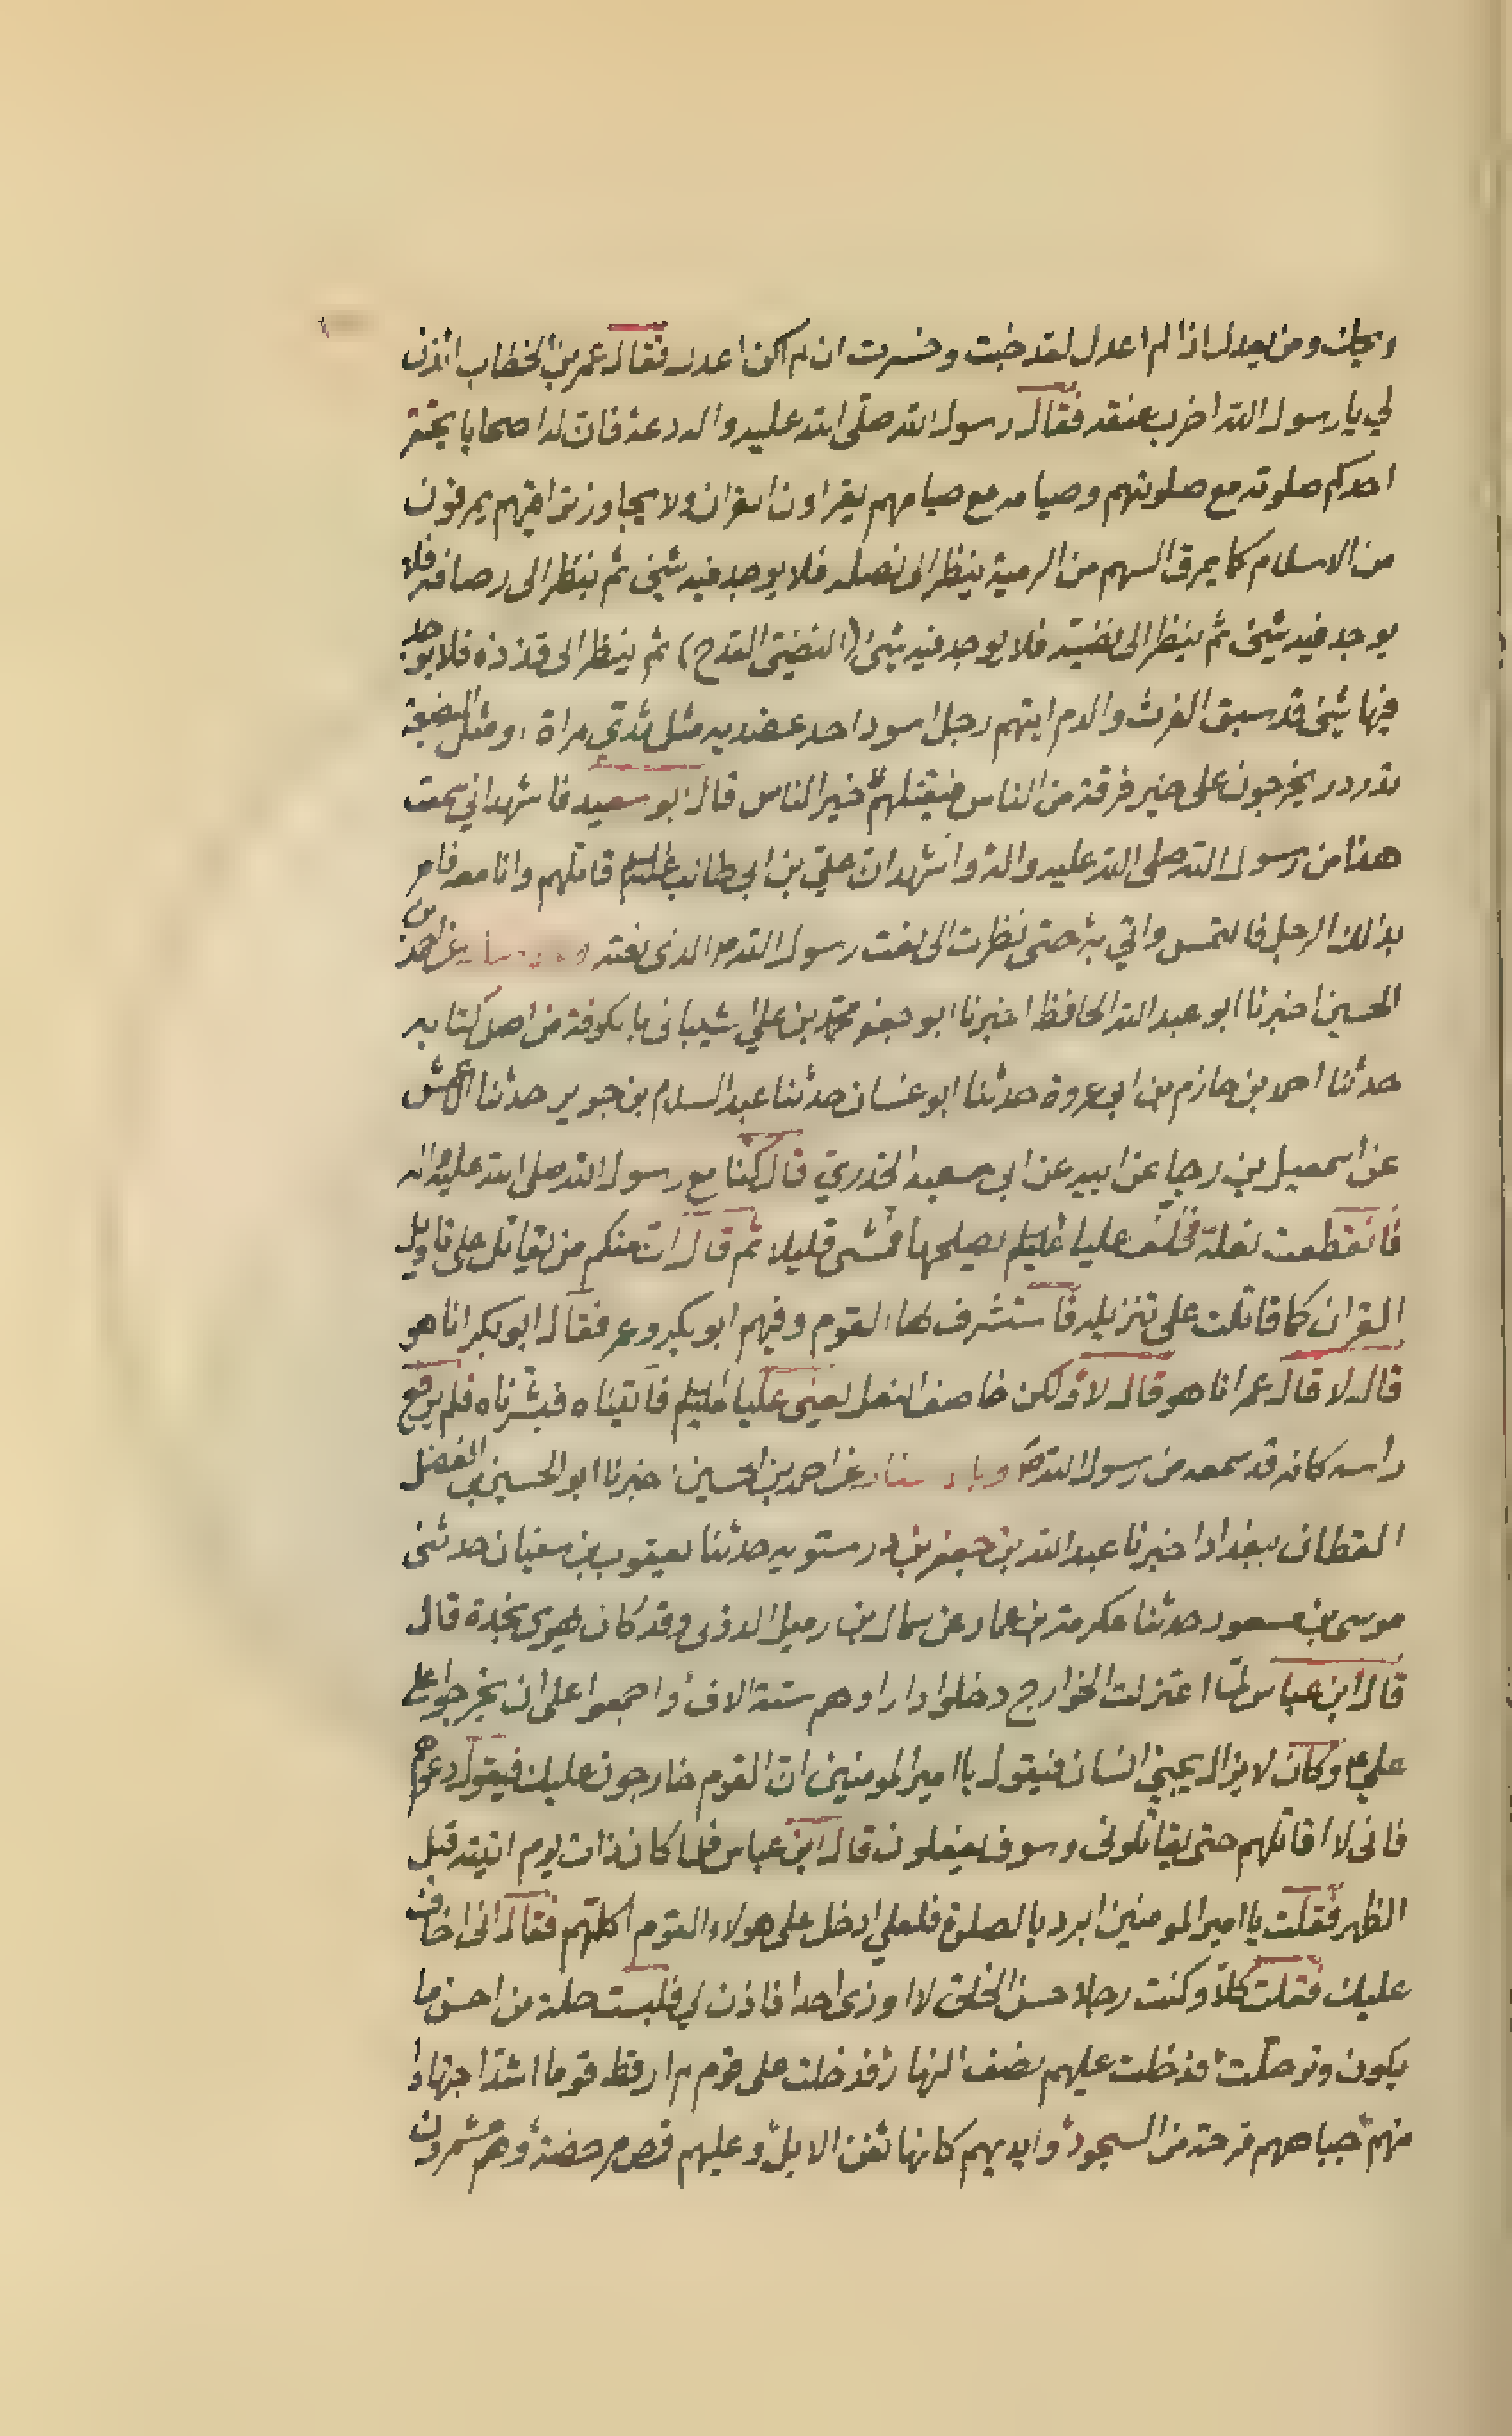 ويحك ومن يعدل اذا لم اعدل لقد خبت وخسرت ان لم اكن اعدل فقال عمر بن الخطاب ائذن
لي يا رسول الله اضرب عنقه فقال رسول الله صلى الله عليه واله دعه فان له اصحابا يحتقر
احدكم صلوته مع صلوتهم وصيامه مع صيامهم يقراون القران ولا يجاوز تراقيهم يمرقون
من الاسلام كما يمرق السهم من الرمية ينظر الى نصله فلا يوجد فيه شئ ثم ينظر الى رصافه فلا
يوجد فيه شئ ثم ينظر الى نضيّه فلا يوجد فيه شئ (النضيّ القدح) ثم ينظر الى قذذه فلا يوجد
فيها شئ قد سبق الفرث والدم ايتهم رجل اسود احد عضديه مثل ثدي مراة او مثل البضعة
تدردر يخرجون على خير فرقة من الناس فيقتلهم خير الناس قال ابو سعيد فاشهد اني سمعت
هذا من رسول الله صلى الله عليه واله واشهد ان علي بن ابي طالب عليه السلم قاتلهم وانا معه فامر
بذلك الرجل فالتمس واتي به حتى نظرت الى نعت رسول الله ص الذى نعته عن احمد بن
الحسين اخبرنا ابو عبد الله الحافظ اخبرنا ابو جعفر محمد بن علي الشيبانى بالكوفة من اصل كتابه
حدثنا احمد بن حازم بن ابي عروة حدثنا ابو غسان حدثنا عبد السلام بن جوير حدثنا الاعمش
عن اسمعيل بن رجا عن ابيه عن ابى سعيد الخدري قال كنا مع رسول الله صلى الله عليه واله
فانقطعت نعله فخلف عليا عليه السلم يصلحها فمشى قليلا ثم قال ان منكم من يقاتل على تاويل
القران كما قاتلت على تنزيله فاستشرف لها القوم وفيهم ابو بكر وعمر فقال ابو بكر انا هو
قال لا قال عمر انا هو قال لا ولكن خاصف النعل يعنى عليا عليه السلم فاتيناه فبشرناه فلم يرفع
راسه كانه قد سمعه من رسول الله ص وباسناده عن احمد بن الحسين اخبرنا ابو الحسين بن الفضل
القطان ببغداد اخبرنا عبد الله بن جعفر بن درستويه حدثنا يعقوب بن سفيان حدثنى
موسى بن مسعود حدثنا عكرمة بن عمار عن سماك بن رميل الدؤلى وقد كان يهوى نجدة قال
قال ابن عباس لمّا اعتزلت الخوارج دخلوا دارا وهم ستة الاف واجمعوا على ان يخرجوا على
علي ع وكان لا يزال يجئ انسان فيقول يا امير المومنين ان القوم خارجون عليك فيقول دعوهم
فانى لا اقاتلهم حتى يقاتلونى وسوف يفعلون قال ابن عباس فلما كان ذات يوم اتيته قبل
الظهر فقلت يا امير المومنين ابرد بالصلوة فلعلي ادخل على هولاء القوم اكلمهم فقال انى اخاف
عليك فقلت كلا وكنت رجلا حسن الخلق لا اوذى احدا فاذن لي فلبست حلة من احسن ما
يكون وترجلت فدخلت عليهم نصف النهار فدخلت على قوم لم ار قط قوما اشد اجتهادا
منهم جباههم قرحة من السجود وايديهم كانها ثفن الابل وعليهم قمص مرحضة وهم مشمرون